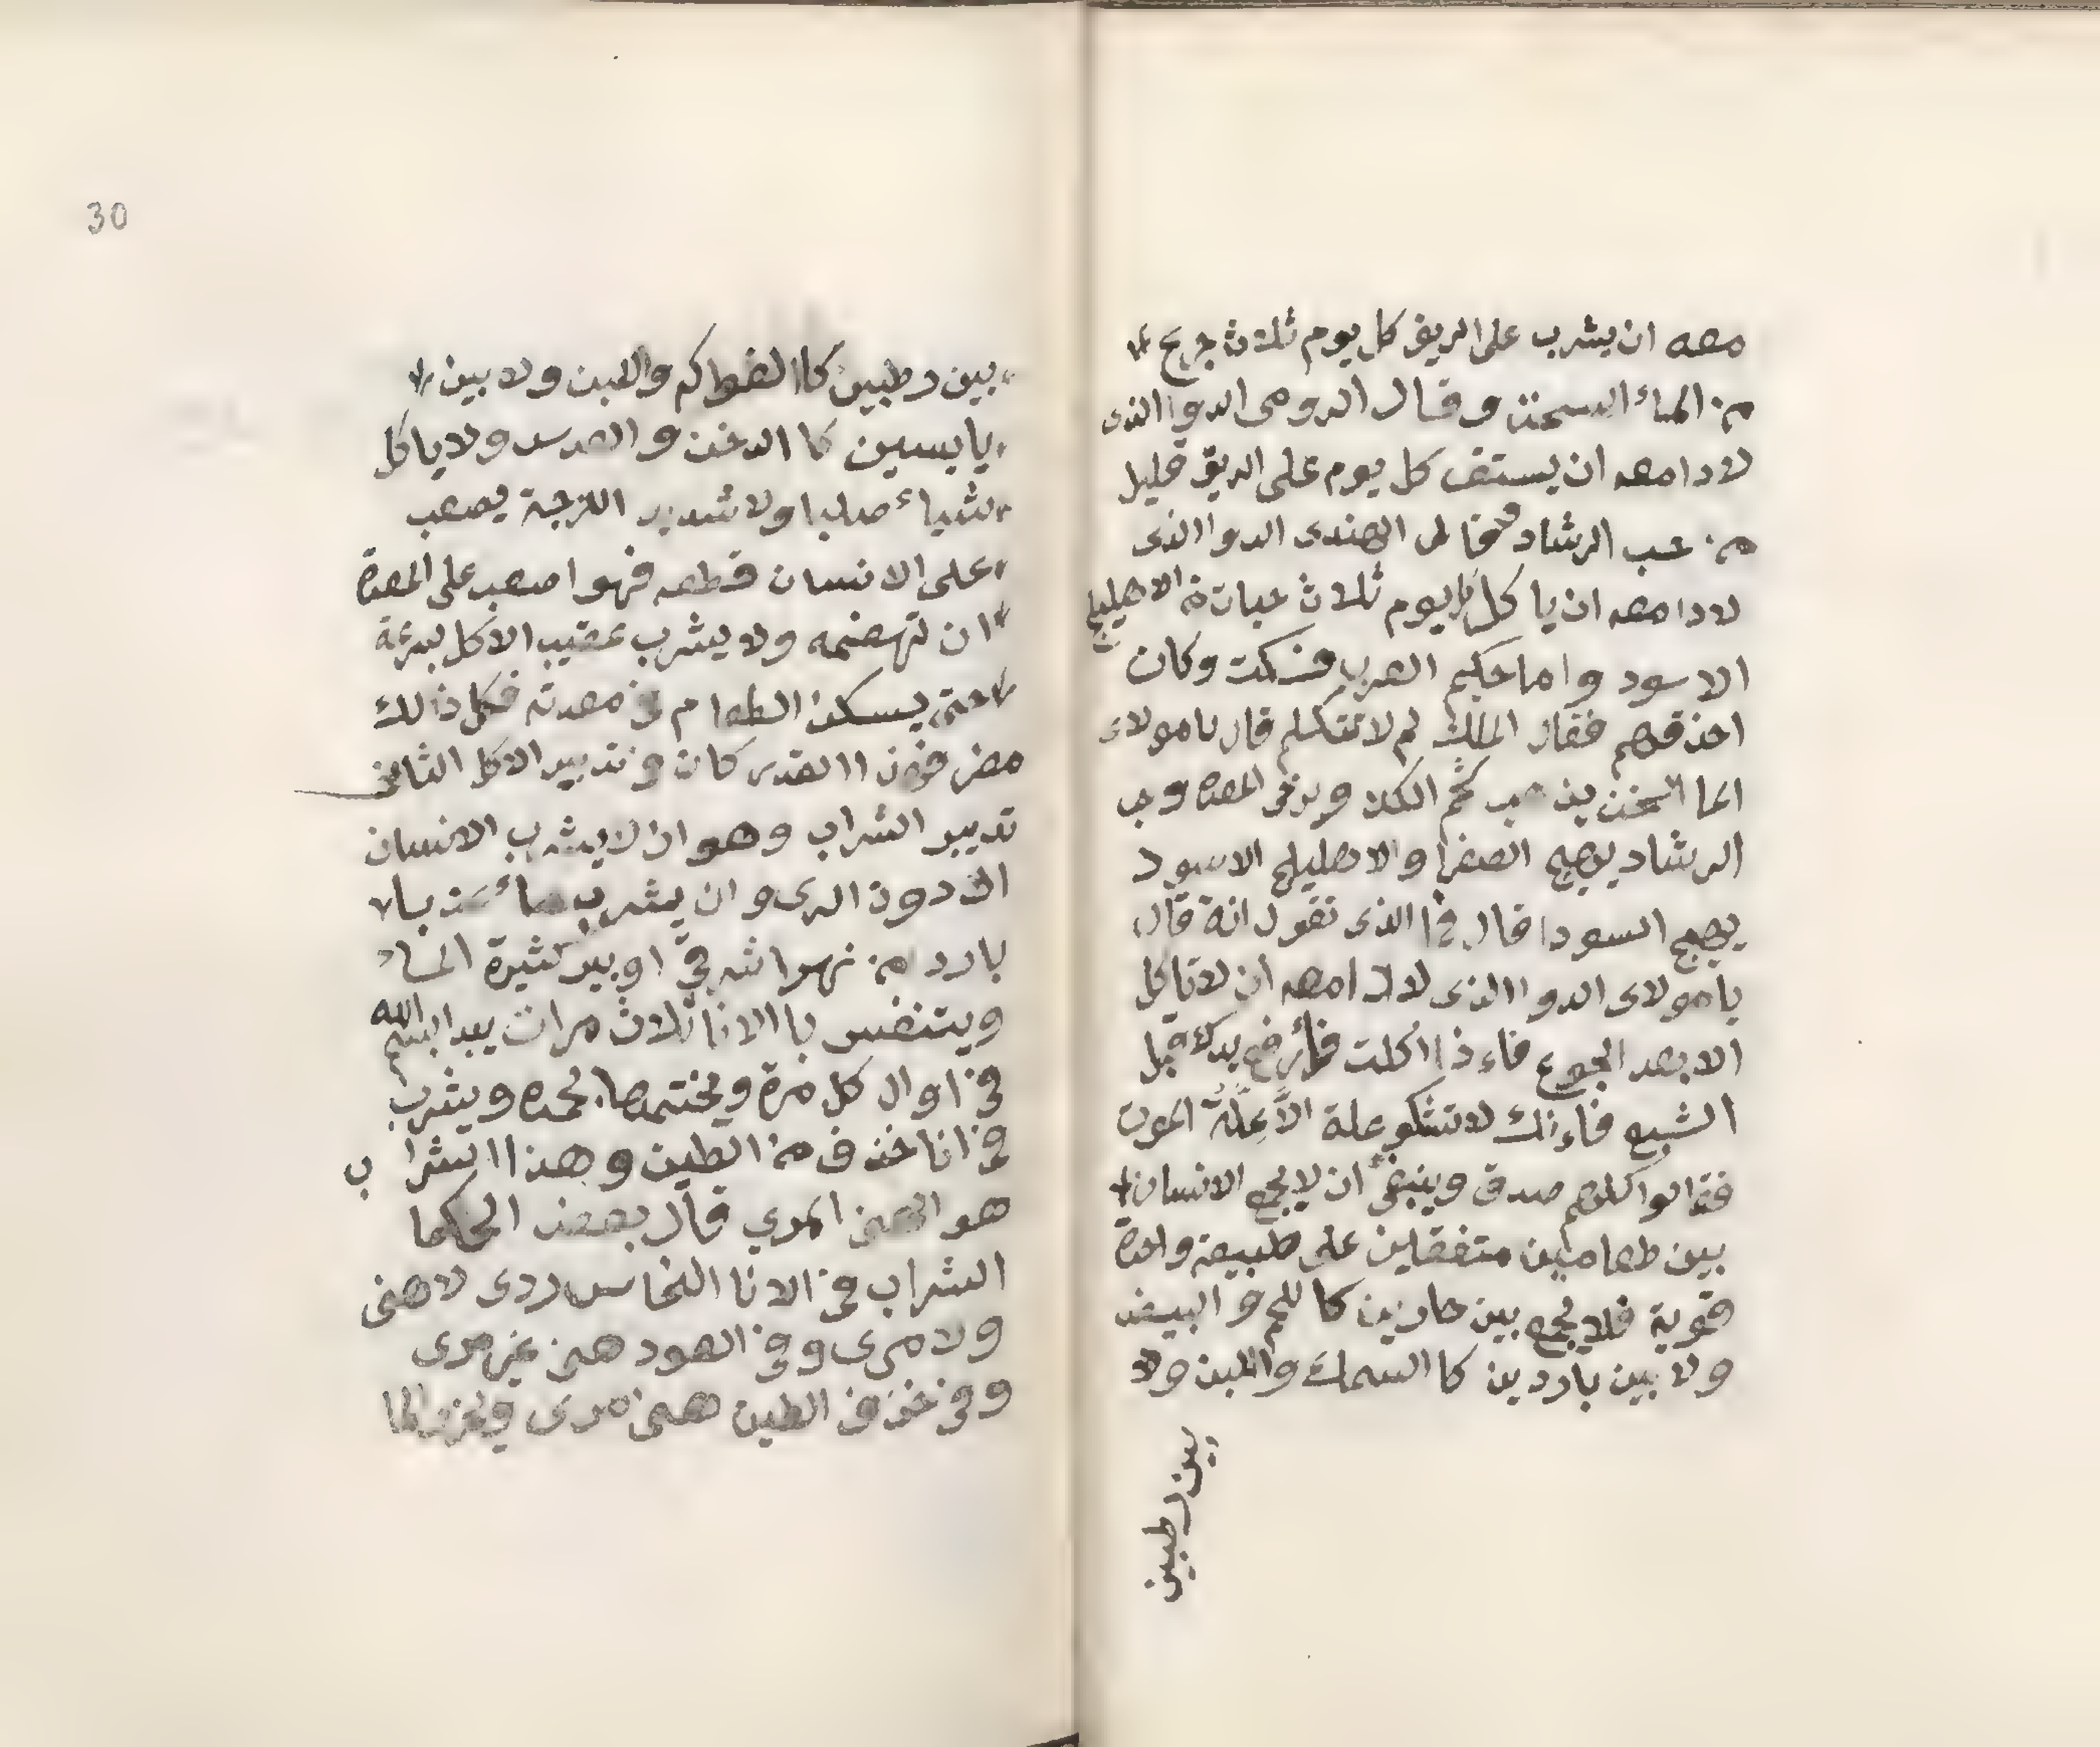 معه ان يشرب على الريق كل يوم ثلاث جرع
من الماء السخن وقال الرومي الدوا الذي
لا دا معه ان يستف كل يوم على الريق قليل
من حب الرشاد وقال الهندي الدوا الذي
لا دا معه ان ياكل كل يوم ثلاث حبات من الاهليلج
الاسود واما حكيم العرب فسكت وكان
احذقهم فقال الملك لم لا تتكلم قال يا مولاي
الما السخن يذهب شحم الكلا ويرخي المعدة وحب
الرشاد يهيج الصفرا والاهليلج الاسود
يهيج السودا قال فما الذي تقول انة قال
يا مولاي الدوا الذي لا دا معه ان لا تاكل
الا بعد الجوع فاءذا اكلت فأرفع يدك قبل
الشبع فاءنك لا تشكو علة الاّ عِلّةُ الموت
فقالوا كلهم صدق وينبغي ان لا يجمع الانسان
بين طعامين متفقلين على طبيعة واحدة
قوية فلا يجمع بين حارين كا للحم والبيض
ولا بين باردين كا السمك واللبن ولا
بين رطبين
30
بين رطبين كا الفواكه واللبن ولا بين
يابسين كا الدخن والعدس ولا ياكل
شياء صلبا ولا شديد اللزجة يصعب
على الانسان قطعه فهوا صعب على المعدة
ان تهضمه ولا يشرب عقيب الاكل بسرعة
حتى يسكن الطعام في معدته فكل ذالك
مضر فهذ االقدر كان في تدبير الاكل الثاني
تدبير الشراب وهو ان لا يشرب الانسان
الا دون الري وان يشرب ماء عذبا
بارد من نهر اشرقيّ او بير كثيرة الماء
ويتنفس با الانا ثلاث مرات يبدا ببسم الله
في اوال كل مرة ويختمها بحمده ويشرب
في انا خزف من الطين وهذا الشراب
هو الهني المري قال بعض الحكما
الشراب في الانا النحاس ردي لا هني
ولا مري وفي العود هني غير مري
وفي خزف الطين هني مري الما